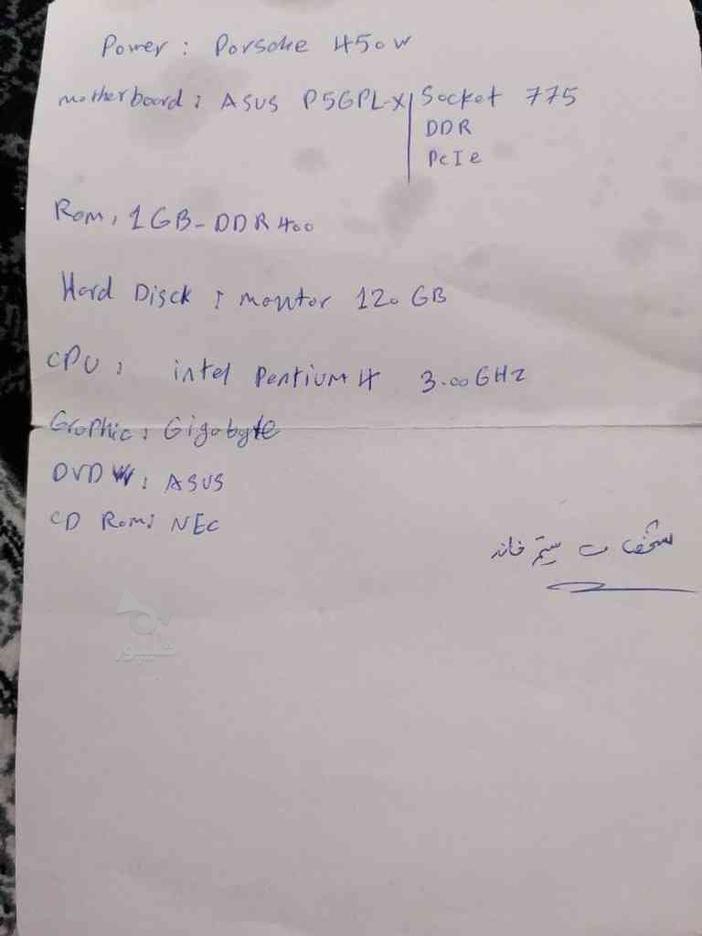 Power : Porsche 450 W
motherboard : ASUS P5GPL-X | Socket 775
DDR
PcIe
Rom, 1GB-DDR400
Hard Disck : montor 120 GB
CPU : intel Pentium 4 3.00 GHz
Graphic : Gigabyte
DVD W : ASUS
CD Rom : NEC
مشخصات سیستم خانه
شیپور